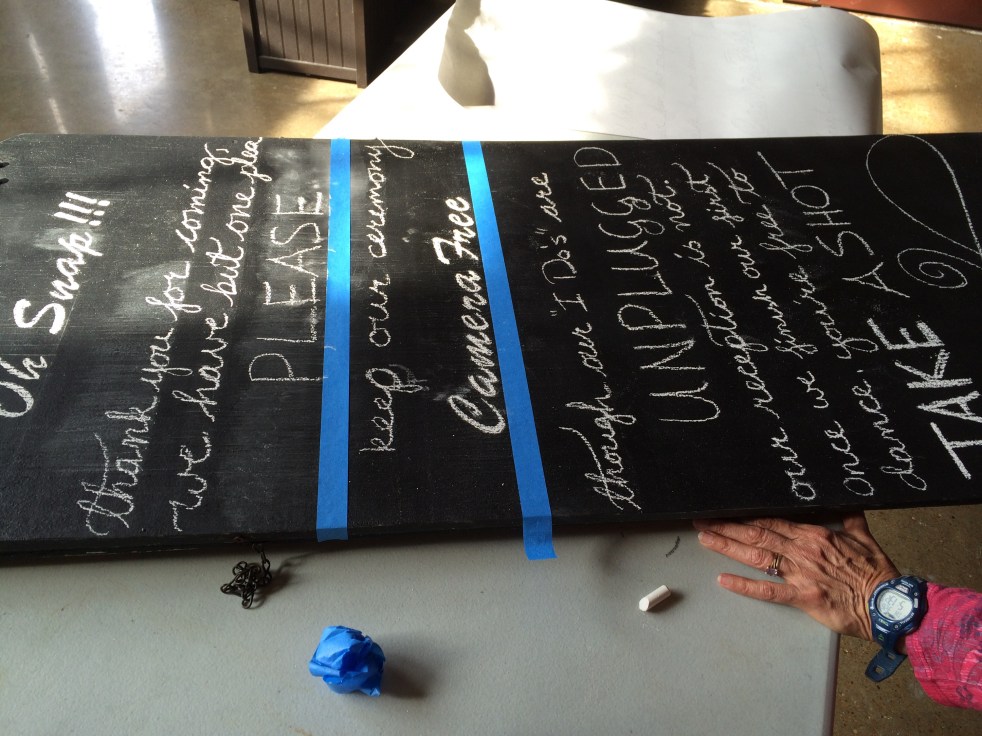 Oh Snap!!!
thank you for coming,
we have but one plea
PLEASE
keep our ceremony
Camera Free
though our "I Do's" are
UNPLUGGED
our reception is not.
once we finish our first
dance, you're free to
TAKE A SHOT